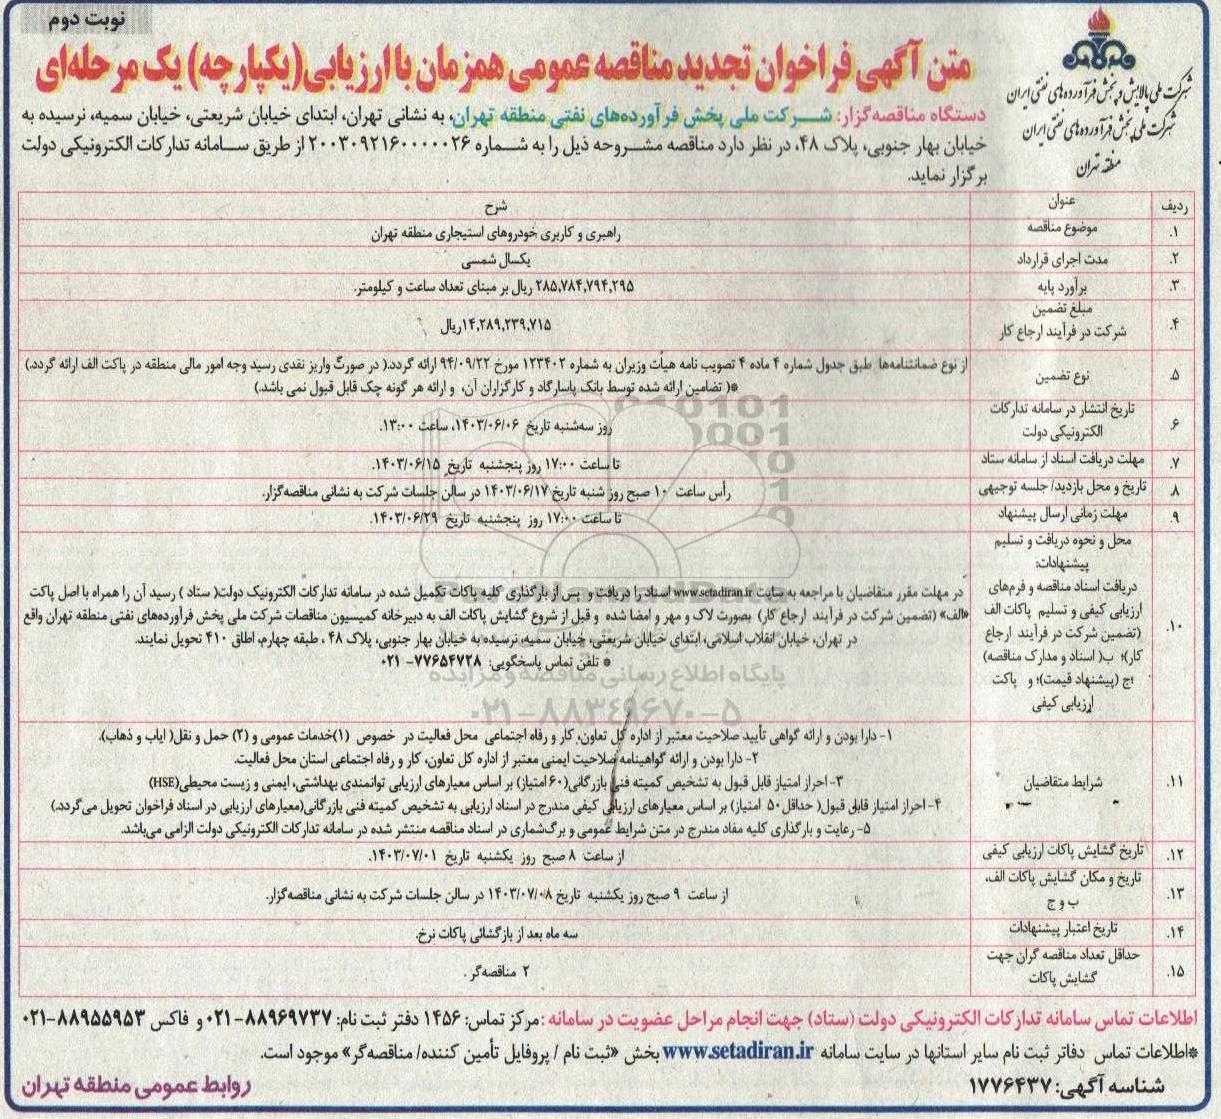 نوبت دوم
متن آگهی فراخوان تجدید مناقصه عمومی همزمان با ارزیابی(یکپارچه) یک مرحله‌ای
شرکت ملی پالایش و پخش فرآورده‌های نفتی ایران
شرکت ملی پخش فرآورده‌های نفتی ایران
منطقه تهران
دستگاه مناقصه‌گزار: شرکت ملی پخش فرآورده‌های نفتی منطقه تهران، به نشانی تهران، ابتدای خیابان شریعتی، خیابان سمیه، نرسیده به
خیابان بهار جنوبی، پلاک ۴۸، در نظر دارد مناقصه مشروحه ذیل را به شماره ۲۰۰۳۰۹۲۱۶۰۰۰۰۰۲۶ از طریق سامانه تدارکات الکترونیکی دولت
برگزار نماید.
ردیف عنوان شرح
۱. موضوع مناقصه راهبری و کاربری خودروهای استیجاری منطقه تهران
۲. مدت اجرای قرارداد یکسال شمسی
۳. برآورد پایه ۲۸۵,۷۸۴,۷۹۴,۲۹۵ ریال بر مبنای تعداد ساعت و کیلومتر.
۴. مبلغ تضمین
شرکت در فرآیند ارجاع کار ۱۴,۲۸۹,۲۳۹,۷۱۵ریال
۵. نوع تضمین از نوع ضمانتنامه‌ها طبق جدول شماره ۴ ماده ۴ تصویب نامه هیأت وزیران به شماره ۱۲۳۴۰۲ مورخ ۹۴/۰۹/۲۲ ارائه گردد.( در صورت واریز نقدی رسید وجه امور مالی منطقه در پاکت الف ارائه گردد.)
*( تضامین ارائه شده توسط بانک پاسارگاد و کارگزاران آن، و ارائه هر گونه چک قابل قبول نمی باشد.)
۶. تاریخ انتشار در سامانه تدارکات
الکترونیکی دولت روز سه‌شنبه تاریخ ۱۴۰۳/۰۶/۰۶، ساعت ۱۳:۰۰.
۷. مهلت دریافت اسناد از سامانه ستاد تا ساعت ۱۷:۰۰ روز پنجشنبه تاریخ ۱۴۰۳/۰۶/۱۵.
۸ تاریخ و محل بازدید/ جلسه توجیهی رأس ساعت ۱۰ صبح روز شنبه تاریخ ۱۴۰۳/۰۶/۱۷ در سالن جلسات شرکت به نشانی مناقصه‌گزار.
۹. مهلت زمانی ارسال پیشنهاد تا ساعت ۱۷:۰۰ روز پنجشنبه تاریخ ۱۴۰۳/۰۶/۲۹.
۱۰. محل و نحوه دریافت و تسلیم
پیشنهادات:
دریافت اسناد مناقصه و فرم‌های
ارزیابی کیفی و تسلیم پاکات الف
(تضمین شرکت در فرآیند ارجاع
کار)؛ ب( اسناد و مدارک مناقصه)
؛ج (پیشنهاد قیمت)؛ و پاکت
ارزیابی کیفی
در مهلت مقرر متقاضیان با مراجعه به سایت www.setadiran.ir اسناد را دریافت و پس از بارگذاری کلیه پاکات تکمیل شده در سامانه تدارکات الکترونیک دولت( ستاد ) رسید آن را همراه با اصل پاکت
«الف» (تضمین شرکت در فرآیند ارجاع کار) بصورت لاک و مهر و امضا شده و قبل از شروع گشایش پاکات الف به دبیرخانه کمیسیون مناقصات شرکت ملی پخش فرآورده‌های نفتی منطقه تهران واقع
در تهران، خیابان انقلاب اسلامی، ابتدای خیابان شریعتی، خیابان سمیه، نرسیده به خیابان بهار جنوبی، پلاک ۴۸ ، طبقه چهارم، اطاق ۴۱۰ تحویل نمایند.
* تلفن تماس پاسخگویی: ۷۷۶۵۴۷۲۸- ۰۲۱
پایگاه اطلاع رسانی مناقصه و مزایده
۰۲۱-۸۸۳۴۹۶۷۰-۵
۱۱. شرایط متقاضیان
۱- دارا بودن و ارائه گواهی تأیید صلاحیت معتبر از اداره کل تعاون، کار و رفاه اجتماعی محل فعالیت در خصوص (۱)خدمات عمومی و (۲) حمل و نقل( ایاب و ذهاب).
۲- دارا بودن و ارائه گواهینامه صلاحیت ایمنی معتبر از اداره کل تعاون، کار و رفاه اجتماعی استان محل فعالیت.
۳- احراز امتیاز قابل قبول به تشخیص کمیته فنی بازرگانی(۶۰ امتیاز) بر اساس معیارهای ارزیابی توانمندی بهداشتی، ایمنی و زیست محیطی(HSE)
۴- احراز امتیاز قابل قبول( حداقل۵۰ امتیاز) بر اساس معیارهای ارزیابی کیفی مندرج در اسناد ارزیابی به تشخیص کمیته فنی بازرگانی(معیارهای ارزیابی در اسناد فراخوان تحویل می‌گردد.)
۵- رعایت و بارگذاری کلیه مفاد مندرج در متن شرایط عمومی و برگ‌شماری در اسناد مناقصه منتشر شده در سامانه تدارکات الکترونیکی دولت الزامی می‌باشد.
۱۲. تاریخ گشایش پاکات ارزیابی کیفی از ساعت ۸ صبح روز یکشنبه تاریخ ۱۴۰۳/۰۷/۰۱.
۱۳. تاریخ و مکان گشایش پاکات الف،
ب و ج از ساعت ۹ صبح روز یکشنبه تاریخ ۱۴۰۳/۰۷/۰۸ در سالن جلسات شرکت به نشانی مناقصه‌گزار.
۱۴. تاریخ اعتبار پیشنهادات سه ماه بعد از بازگشائی پاکات نرخ.
۱۵. حداقل تعداد مناقصه گران جهت
گشایش پاکات ۲ مناقصه‌گر .
اطلاعات تماس سامانه تدارکات الکترونیکی دولت (ستاد) جهت انجام مراحل عضویت در سامانه :مرکز تماس: ۱۴۵۶ دفتر ثبت نام: ۸۸۹۶۹۷۳۷-۰۲۱ و فاکس ۸۸۹۵۵۹۵۳-۰۲۱
*اطلاعات تماس دفاتر ثبت نام سایر استانها در سایت سامانه www.setadiran.ir بخش «ثبت نام / پروفایل تأمین کننده/ مناقصه‌گر» موجود است.
شناسه آگهی: ۱۷۷۶۴۳۷
روابط عمومی منطقه تهران